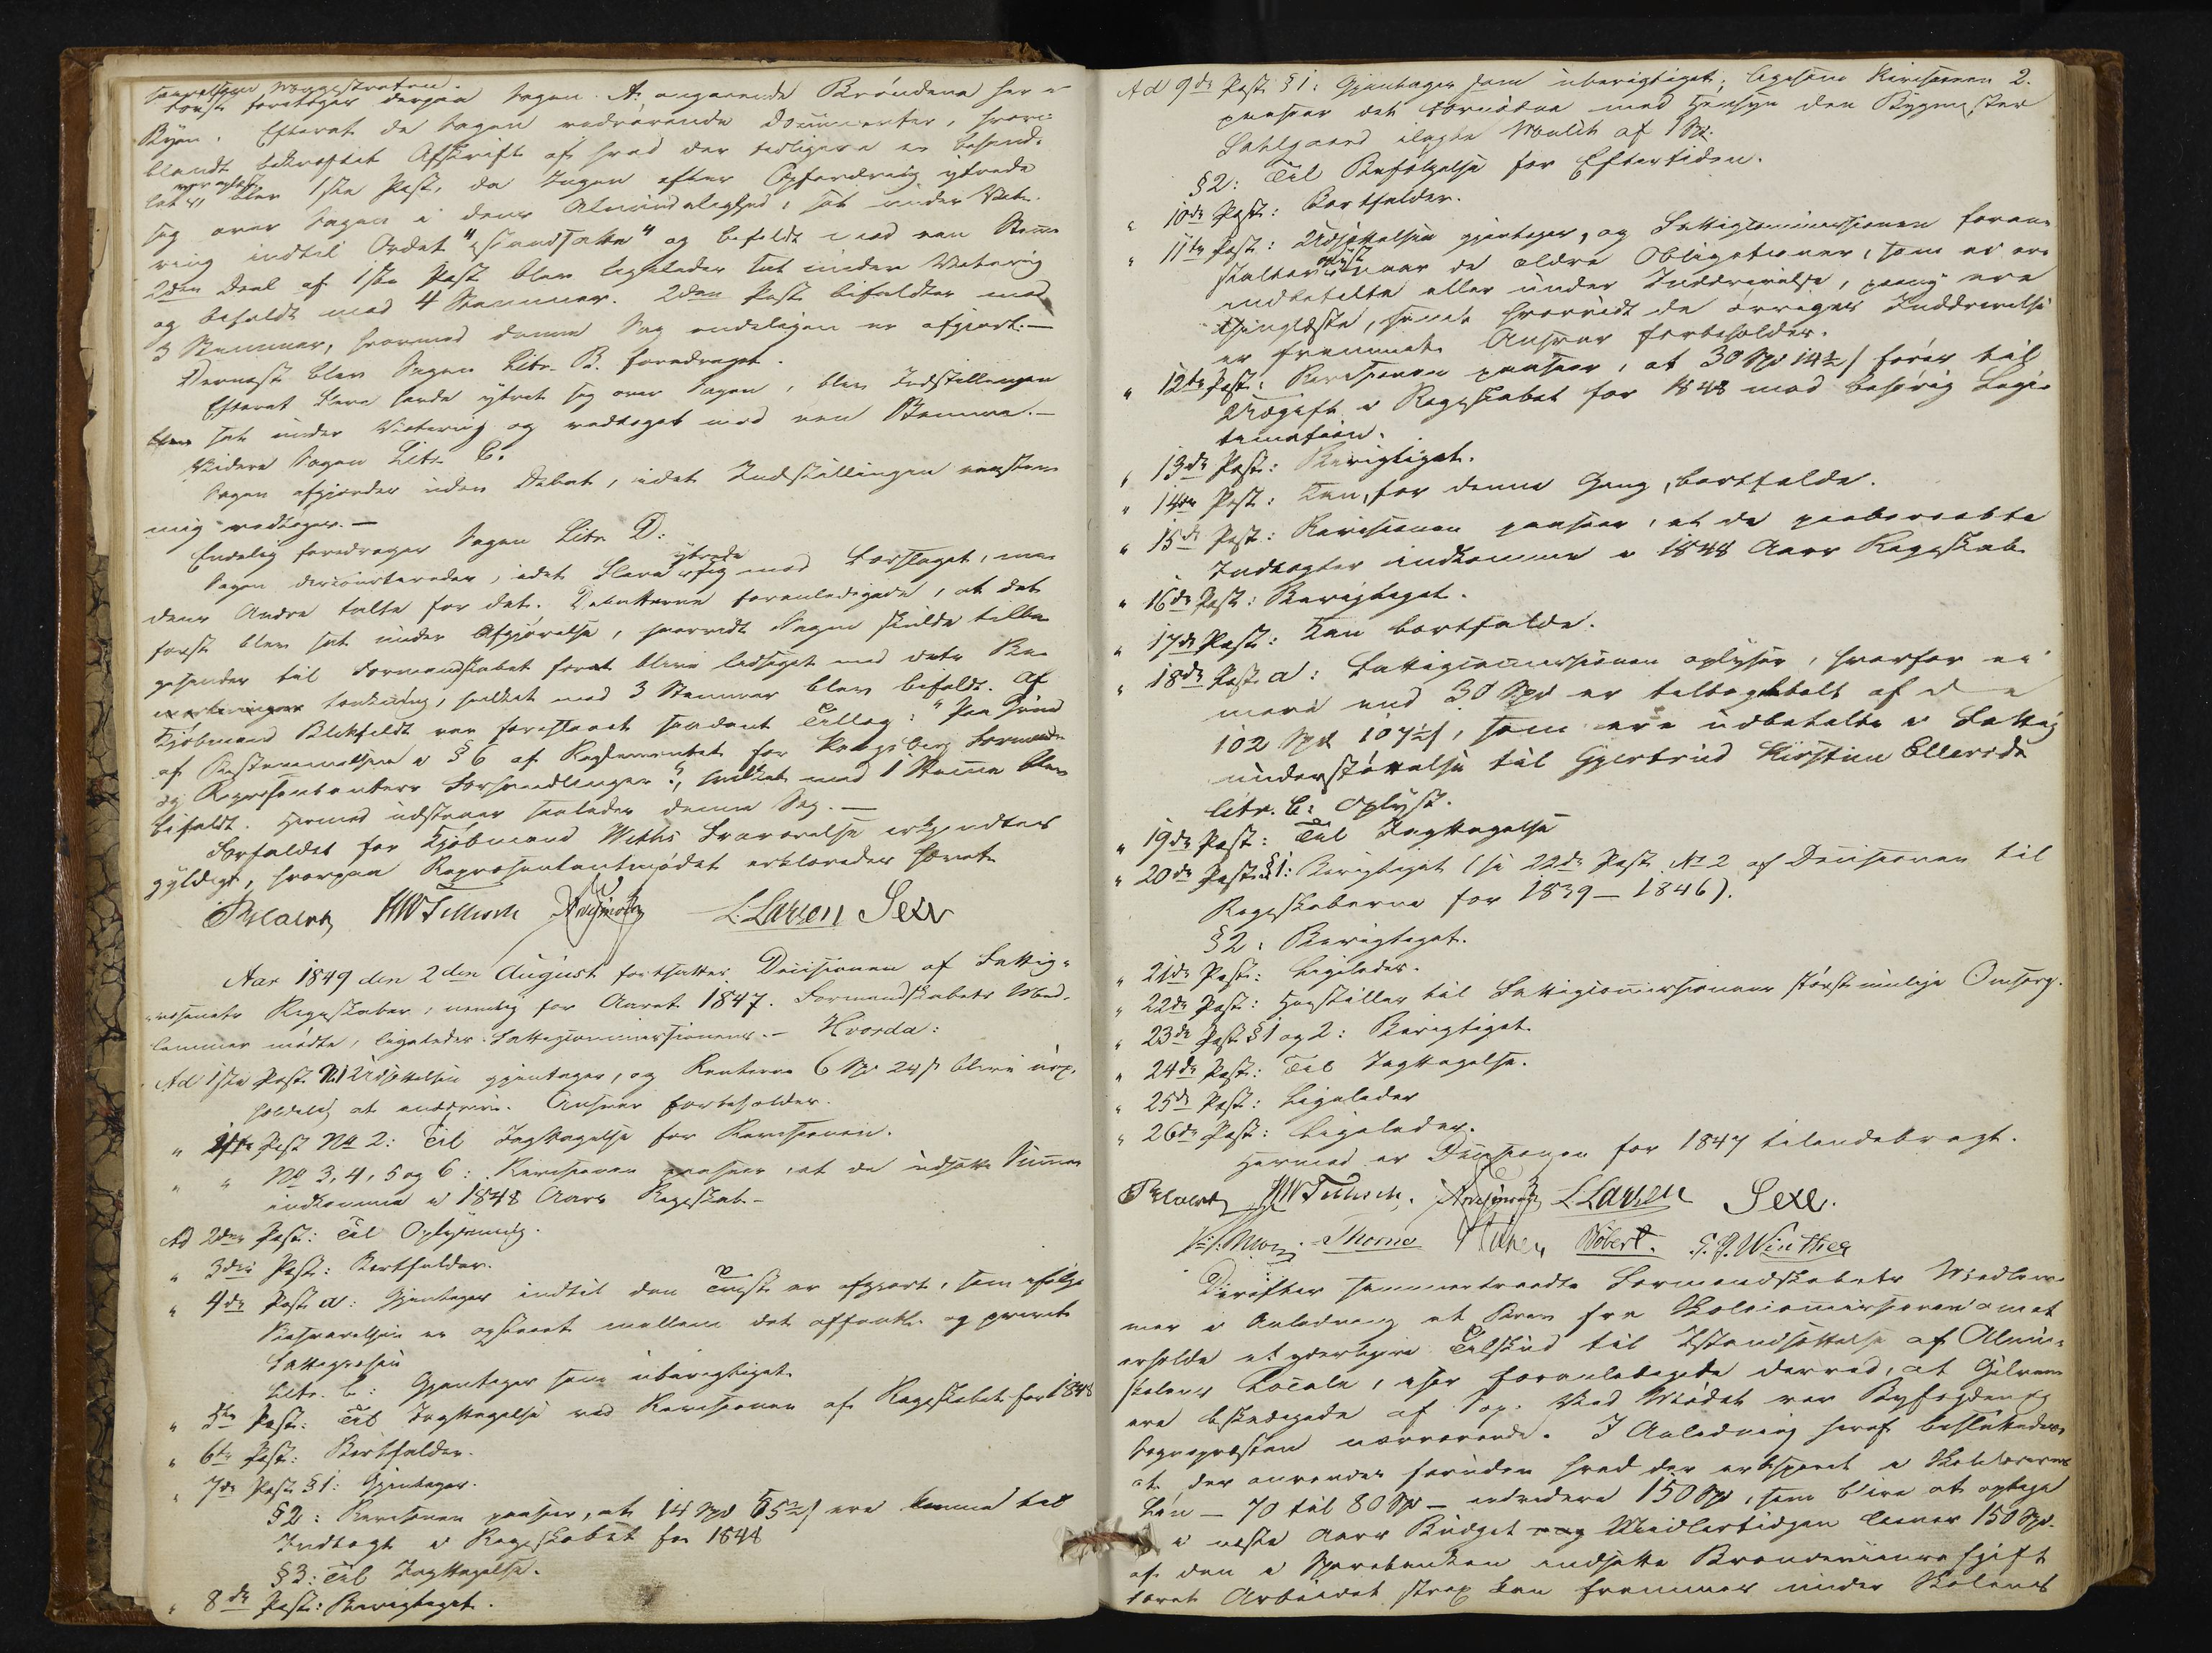 Magistraten.
Først foretoges derpaa Sagen A, angaaende Brøndene her i
Byen. Efterat de Sagen vedrørende Documenter, hvori-
blandt bekræftet Afskrift af hvad der tidligere er besluttet
var oplæst, blev 1ste Post, da Ingen efter Opfordring ytrede
sig over Sagen i dens Almindelighed, sat under Vote-
ring indtil Ordet "istandsatte" og bifaldt med een Stemme
2den Deel af 1ste Post blev ligeledes sat under Votering
og bifaldt med 4 Stemmer. 2den Post bifaldtes med
3 Stemmer, hvormed denne Sag endeligen er afgjort.—
Dernæst blev Sagen Litr. B. foredraget.
Efterat Flere havde ytret sig over Sagen, blev Indstillingen
sat under Votering og vedtaget med een Stemme.—
Videre Sagen Litr. C.
Sagen afgjordes uden Debat, idet Indstillingen eenstem-
mig vedtoges.—
Endelig foredroges Sagen Litr. D:
Sagen discuteredes, idet Flere ytrede sig mod Forslaget, me-
dens Andre talte for det. Debatterne foranledigede, at det
først blev sat under Afgjørelse, hvorvidt Sagen skulde tilba-
gesendes til Formandskabet forat blive ledsaget med dets Be-
tænkning, hvilket med 3 Stemmer blev bifaldt. Af
Kjøbmand Blehfeldt var foreslaaet saadant Tillæg: "Paa Grund
af Bestemmelsen i § 6 af Reglementet for Kragerø Formænds
og Repræsentanters Forhandlinger", hvilket med 1 Stemme blev
bifaldt. Hermed udstaaer saaledes denne Sag.—
Forfaldet for Kjøbmand Weths Fraværelse erkjendtes
gyldigt, hvorpaa Repræsentantmødet erklæredes hævet.
HWTellisch L. Larsen Sexe
Aar 1849 den 2den August fortsattes Decisionen af Fattig-
væsenets Regnskaber, nemlig for Aaret 1847. Formandskabets Med-
lemmer mødte, ligeledes Fattigcommissionens.— Hvorda:
Ad 1ste Post No 1 Udsættelsen gjentages, og Renterne 6 Spd 24 s blive uop-
holdelig at inddrive. Ansvar forbeholdes.
" 1ste Post No 2: Til Iagttagelse for Revisionen.
" " No 3, 4, 5 og 6: Revisionen paaseer, at de udsatte Summer
indkomme i 1848 Aars Regnskab.—
Ad 2den Post: Til Oplysning.
" 3die Post: Bortfalder.
" 4de Post a: Gjentages indtil den Tvist er afgjort, som ifølge
Besvarelsen er opstaaet mellem det offentl. og private
Fattigvæsen
Litr. b: Gjentages som uberigtiget.
" 5te Post: Til Iagttagelse ved Revisionen af Regnskabet for 1848
" 6te Post: Bortfalder.
" 7de Post § 1: Gjentages.
§ 2: Revisionen paaseer, at 14 Spd 65½ s ere komne til
Indtægt i Regnskabet for 1848
§ 3: Til Iagttagelse.
" 8de Post: Berigtiget.
Ad 9de Post § 1: Gjentages som uberigtiget; ligesom Revisionen
paaseer det fornødne med Hensyn den Bygmester
Dahlgaard ilagte Mulct af 1 Spd.
§ 2: Til Befølgelse for Eftertiden.
" 10de Post: Bortfalder.
" 11te Post: Udsættelsen gjentages, og Fattigcommissionen foran-
stalter oplyst naar de ældre Obligationer, som ei ere
indbetalte eller under Inddrivelse, paany ere
thinglæste, samt hvorvidt de øvriges Inddrivelse
er fremmet. Ansvar forbeholdes.
" 12te Post: Revisionen paaseer, at 30 Spd 14½ s føres til
Udgift i Regnskabet for 1848 med behørig Legi-
timation.
" 13de Post: Berigtiget.
" 14de Post: Kan, for denne Gang, bortfalde.
" 15de Post: Revisionen paaseer, at de paaberaabte
Indtægter indkomme i 1848 Aars Regnskab
" 16de Post: Berigtiget.
" 17de Post: Kan bortfalde.
" 18de Post a: Fattigcommissionen oplyser, hvorfor ei
mere end 30 Spd er tilbagebetalt af de
102 Spd 107½ s, som ere udbetalte i Fattig-
understøttelse til Gjertrud Kirstine Ellersdr
Litr. b: Oplyst.
" 19de Post: Til Iagttagelse
" 20de Post § 1: Berigtiget (se 22de Post No 2 af Decisionen til
Regnskaberne for 1839–1846).
§ 2: Berigtiget.
" 21de Post: Ligeledes.
" 22de Post: Henstilles til Fattigcommissionens størst mulige Omsorg.
" 23de Post § 1 og 2: Berigtiget.
" 24de Post: Til Iagttagelse.
" 25de Post: Ligeledes
" 26de Post: Ligeledes.
Hermed er Decisionen for 1847 tilendebragt.
HWTellisch. L. Larsen Sexe.
Thorne Wibert. Winther
Derefter sammentraadte Formandskabets Medlem-
mer i Anledning et Brev fra Skolecommissionen om at
erholde et yderligere Tilskud til Istandsættelse af Almue-
skolens Locale, især foranlediget derved, at Gulvene
ere beskadigede af Sop. Ved Mødet var Byfogden og
Sognepræsten nærværende. I Anledning heraf besluttedes
at der anvendes foruden hvad der er bespart i Skolekassen
Løn – 70 til 80 Spd – endvidere 150 Spd, som blive at optage
i næste Aars Budget Midlertidigen laanes 150 Spd.
af den i Sparebanken indsatte Brændeviinsafgift
forat Arbeidet strax kan fremmes under Skolens